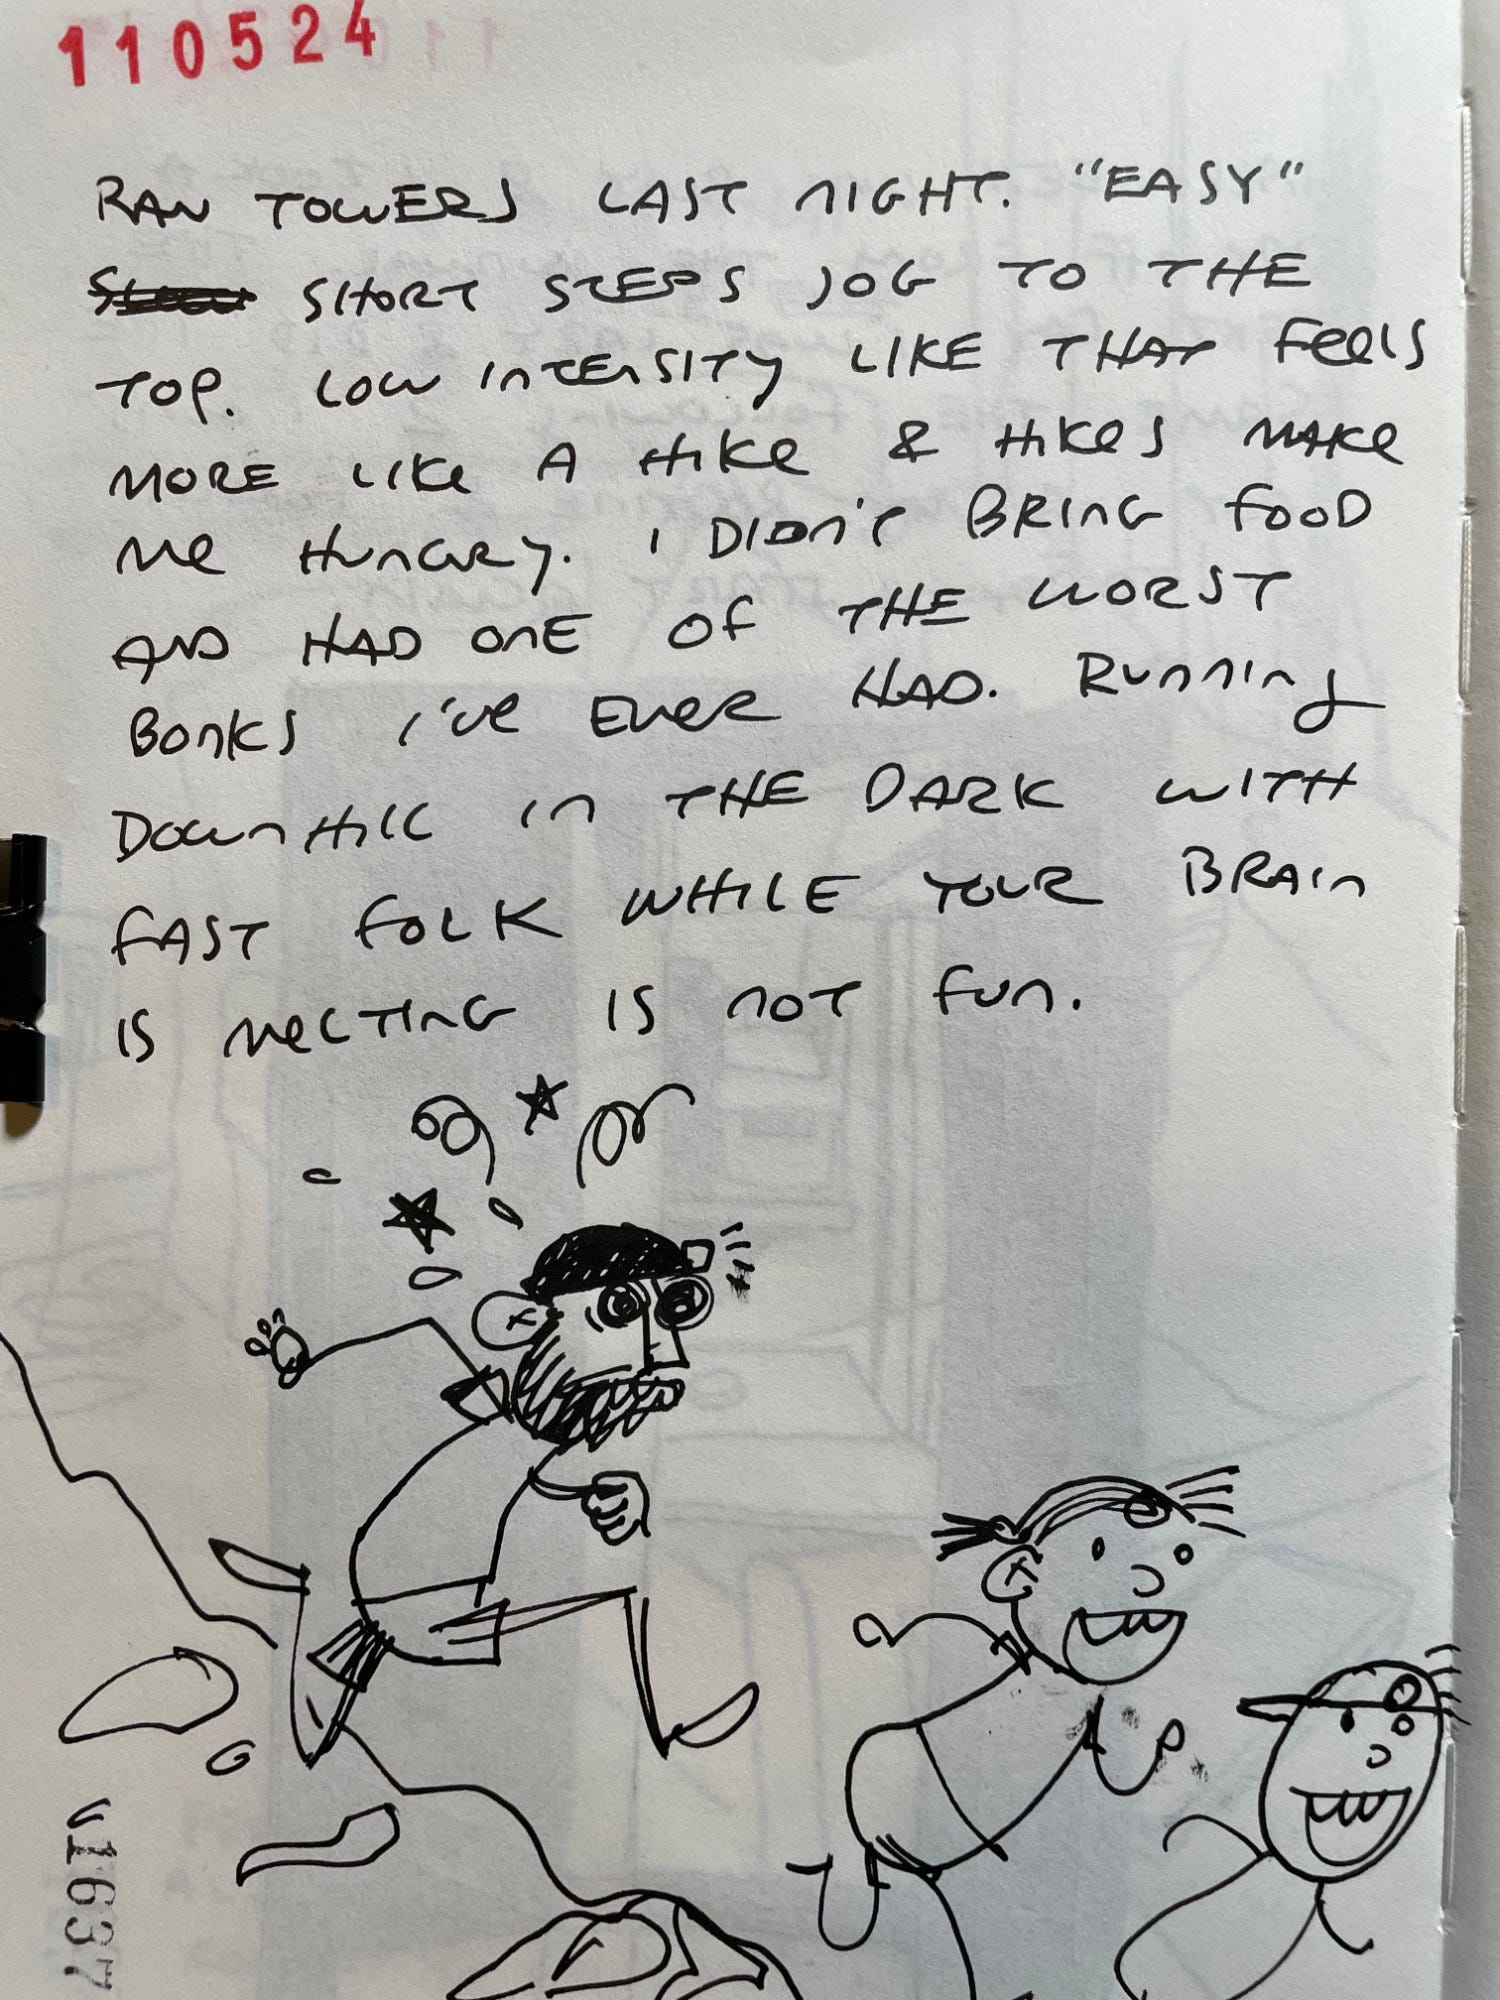 110524
RAN TOWERS LAST NIGHT. "EASY"
SHORT STEPS JOG TO THE
TOP. LOW INTENSITY LIKE THAT FEELS
MORE LIKE A HIKE & HIKES MAKE
ME HUNGRY. I DIDN'T BRING FOOD
AND HAD ONE OF THE WORST
BONKS I'VE EVER HAD. RUNNING
DOWNHILL IN THE DARK WITH
FAST FOLK WHILE YOUR BRAIN
IS MELTING IS NOT FUN.
1637